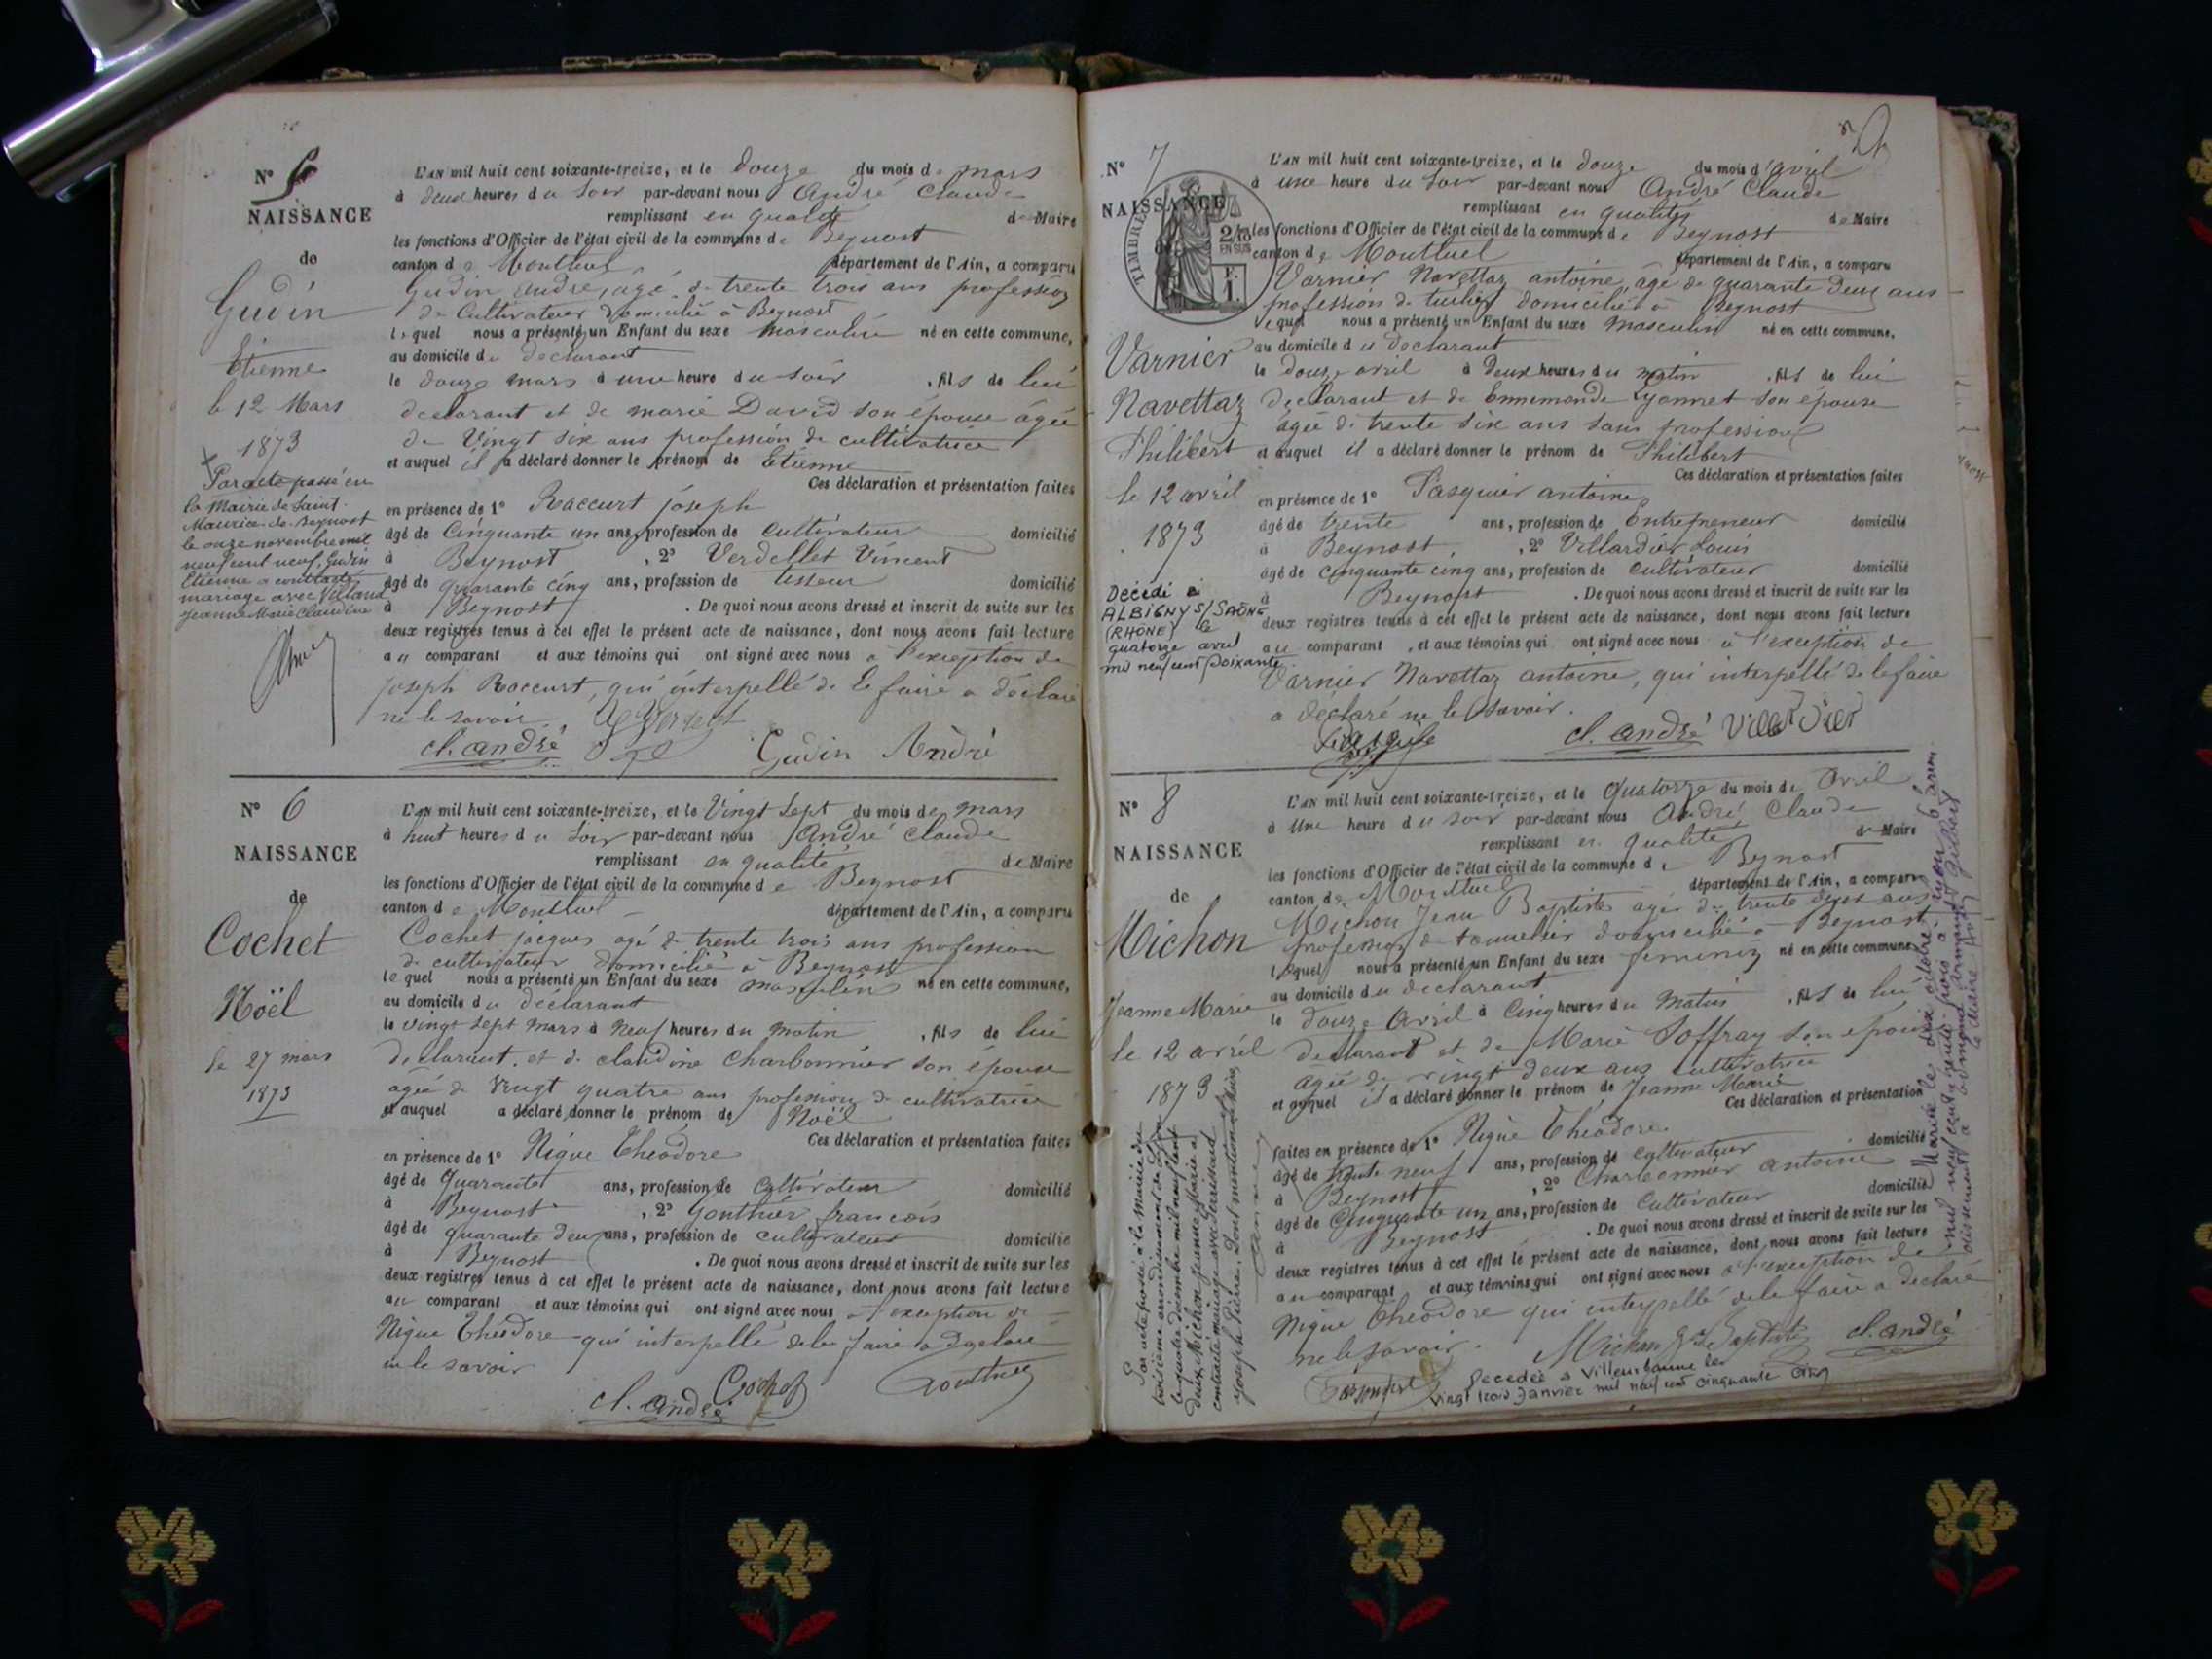 N° 5
NAISSANCE
de
Gudin
Etienne
le 12 Mars
1873
Par acte passé en
la Mairie de Saint
Maurice de Beynost
le onze novembre mil
neuf cent neuf, Gudin
Etienne a contracté
mariage avec
Jeanne Marie Claudine
L'AN mil huit cent soixante-treize, et le douze du mois de mars
à deux heures du soir par-devant nous André Claude
remplissant en qualité de Maire
les fonctions d'Officier de l'état civil de la commune de Beynost
canton de Montluel département de l'Ain, a comparu
Gudin andré, âgé de trente trois ans profession
de Cultivateur domicilié à Beynost
lequel nous a présenté un Enfant du sexe masculin né en cette commune,
au domicile du déclarant
le douze mars à une heure du soir, fils de lui
declarant et de marie David son épouse âgée
de Vingt six ans profession de cultivatrice
et auquel il a déclaré donner le prénom de Etienne
Ces déclaration et présentation faites
en présence de 1° Raccurt joseph
âgé de Cinquante un ans, profession de Cultivateur domicilié
à Beynost, 2° Verdellet Vincent
âgé de quarante cinq ans, profession de tisseur domicilié
à Beynost. De quoi nous avons dressé et inscrit de suite sur les
deux registres tenus à cet effet le présent acte de naissance, dont nous avons fait lecture
au comparant et aux témoins qui ont signé avec nous à l'exception de
joseph Raccurt, qui interpellé de le faire a déclaré
ne le savoir
cl. andré Gudin André
N° 6
NAISSANCE
de
Cochet
Noël
le 27 mars
1873
L'AN mil huit cent soixante-treize, et le Vingt sept du mois de mars
à huit heures du soir par-devant nous André Claude
remplissant en qualité de Maire
les fonctions d'Officier de l'état civil de la commune de Beynost
canton de Montluel département de l'Ain, a comparu
Cochet jacques agé de trente trois ans profession
de cultivateur domicilié à Beynost
lequel nous a présenté un Enfant du sexe masculin né en cette commune,
au domicile du déclarant
le vingt sept mars à neuf heures du matin, fils de lui
declarant. et de claudine Charbonnier son épouse
agée de Vingt quatre ans profession de cultivatrice
et auquel a déclaré donner le prénom de Noël
Ces déclaration et présentation faites
en présence de 1° Nigue Théodore
âgé de Quarante ans, profession de Cultivateur domicilié
à Beynost, 2° Gonthier francois
âgé de quarante deux ans, profession de cultivateur domicilié
à Beynost. De quoi nous avons dressé et inscrit de suite sur les
deux registres tenus à cet effet le présent acte de naissance, dont nous avons fait lecture
au comparant et aux témoins qui ont signé avec nous a l'exception de
Nigue Théodore qui interpellé de le faire a declaré
ne le savoir
cl. andré Cochet Gonthier
N° 7
NAISSANCE
de
TIMBRE
2/10
EN SUS
F.
1.
Varnier
Navettaz
Philibert
le 12 avril
1873
Décédé à
ALBIGNY S/SAÔNE
(RHÔNE) le
quatorze avril
mil neuf cent soixante
L'AN mil huit cent soixante-treize, et le douze du mois d'avril
à une heure du soir par-devant nous André Claude
remplissant en qualité de Maire
les fonctions d'Officier de l'état civil de la commune de Beynost
canton de Montluel département de l'Ain, a comparu
Varnier Navettaz antoine, âgé de quarante deux ans
profession de tuilier domicilié à Beynost
lequel nous a présenté un Enfant du sexe masculin né en cette commune,
au domicile du declarant
le douze avril à Deux heures du matin, fils de lui
declarant et de Ennemonde Lyonnet son épouse
agée de trente six ans sans profession
et auquel il a déclaré donner le prénom de Philibert
Ces déclaration et présentation faites
en présence de 1° Pasquier antoine
âgé de trente ans, profession de Entrepreneur domicilié
à Beynost, 2° Villardier Louis
âgé de cinquante cinq ans, profession de cultivateur domicilié
à Beynost. De quoi nous avons dressé et inscrit de suite sur les
deux registres tenus à cet effet le présent acte de naissance, dont nous avons fait lecture
au comparant, et aux témoins qui ont signé avec nous à l'exception de
Varnier Navettaz antoine, qui interpellé de le faire
a déclaré ne le savoir.
cl. andré
N° 8
NAISSANCE
de
Michon
Jeanne Marie
le 12 avril
1873
L'AN mil huit cent soixante-treize, et le quatorze du mois de avril
à une heure du soir par-devant nous André Claude
remplissant en qualité de Maire
les fonctions d'Officier de l'état civil de la commune de Beynost
canton de Montluel département de l'Ain, a comparu
Michon Jean Baptiste âgé de trente deux ans
profession de tonnelier domicilié à Beynost
lequel nous a présenté un Enfant du sexe feminin né en cette commune
au domicile du declarant
le douze Avril à Cinq heures du matin, fils de lui
declarant et de Marie Joffray son épouse
agée de vingt deux ans cultivatrice
et auquel il a déclaré donner le prénom de Jeanne Marie
Ces déclaration et présentation
faites en présence de 1° Nigue Théodore
âgé de trente neuf ans, profession de cultivateur domicilié
à Beynost, 2° Charbonnier antoine
âgé de Cinquante un ans, profession de Cultivateur domicilié
à Beynost. De quoi nous avons dressé et inscrit de suite sur les
deux registres tenus à cet effet le présent acte de naissance, dont nous avons fait lecture
au comparant et aux témoins qui ont signé avec nous a l'exception de
Nigue Théodore qui interpellé de le faire a declaré
ne le savoir.
Michon Jn Baptiste cl. andré
Decedée a Villeurbanne le
vingt trois Janvier mil neuf cent cinquante cinq
Par acte passé à la Mairie du
troisième arrondissement de Lyon
le quatre décembre mil neuf cent
deux, Michon Jeanne Marie a
contracté mariage avec
Joseph Pierre. Dont mention
Mariée le dix octobre
mil neuf cent